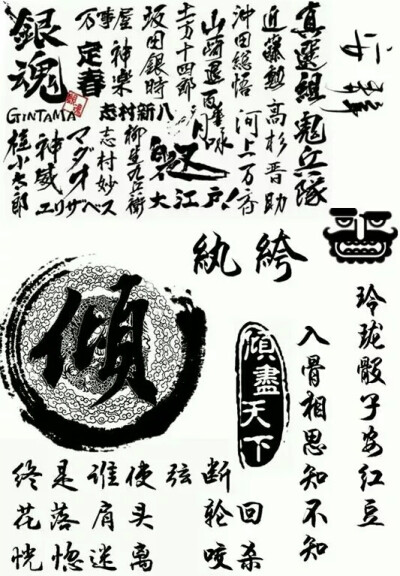 真選組鬼兵隊
近藤勲 高杉晋助
沖田総悟 河上万斉
山崎退
月詠
土方十四郎
坂田銀時
万事屋
神楽
定春
銀魂
GINTAMA
志村新八
柳生九兵衛
志村妙
マダオ
神威
エリザベス
桂小太郎
大江戸!
紈絝
傾
傾盡天下
玲珑骰子安红豆
入骨相思知不知
终是谁使弦 断
花落肩头 轮回
恍惚迷离 咬杀